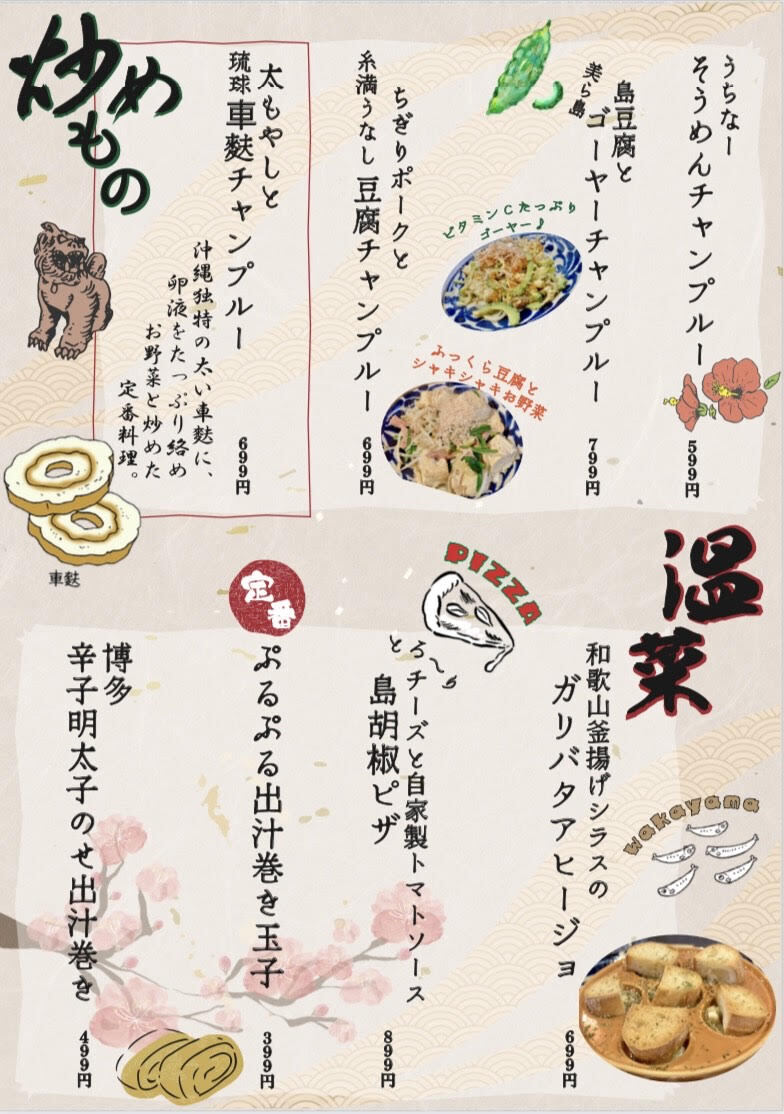 炒めもの
うちなー
そうめんチャンプルー
599円
島豆腐と
美ら島
ゴーヤーチャンプルー
799円
ビタミンCたっぷり
ゴーヤー♪
ちぎりポークと
糸満うなし 豆腐チャンプルー
699円
ふっくら豆腐と
シャキシャキお野菜
太もやしと
琉球 車麩チャンプルー
699円
沖縄独特の太い車麩に、
卵液をたっぷり絡め
お野菜と炒めた
定番料理。
車麩
温菜
和歌山釜揚げシラスの
ガリバタアヒージョ
699円
wakayama
PIZZA
とろ〜りチーズと自家製トマトソース
島胡椒ピザ
899円
定番
ぷるぷる出汁巻き玉子
399円
博多
辛子明太子のせ出汁巻き
499円